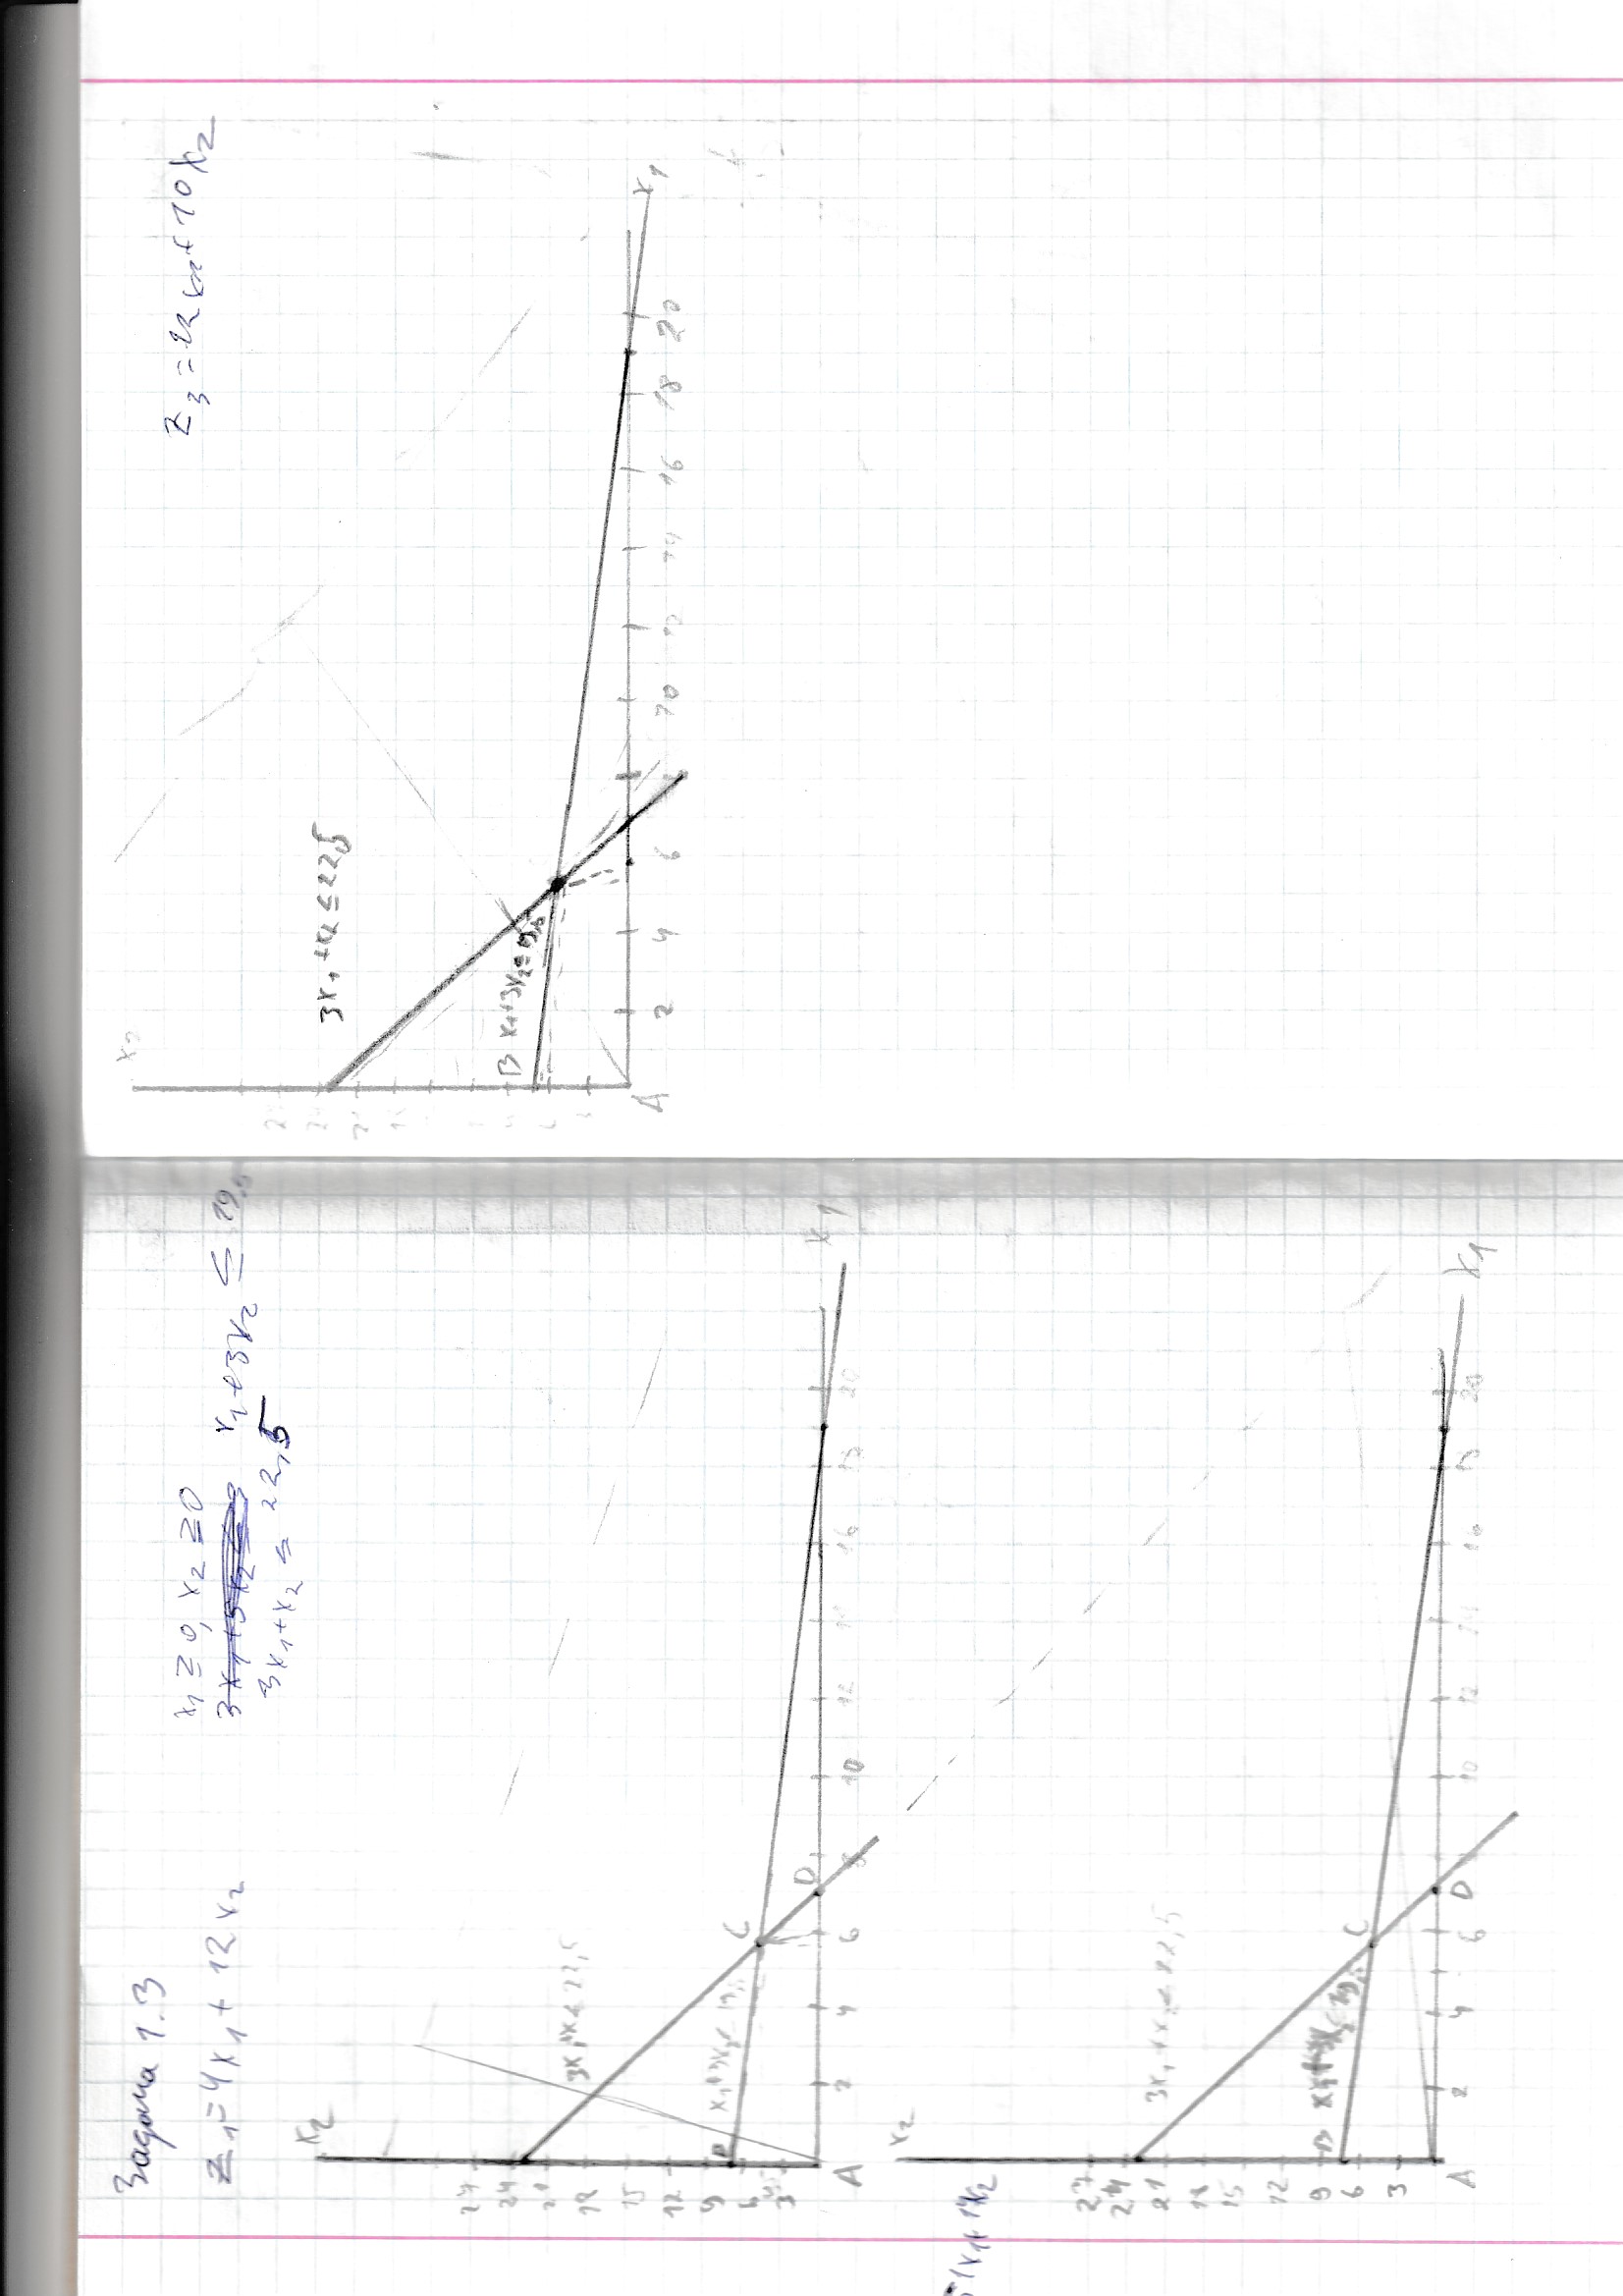 Задача 1.3
z₁=4x₁+12x₂
x₁≥0, x₂≥0
x₁+3x₂≤19,5
3x₁+x₂≤22,5
x₂
27
24
21
18
3x₁+x≤22,5
15
12
9
B x₁+3x₂≤19,5
C
3
D
A 2 4 6 8 10 12 14 16 18 20 x₁
x₂
1x₁+14x₂
27
24
21
3x₁+x₂≤22,5
18
15
12
9
B
6
C
3
A 2 4 6 D 10 12 14 16 18 20 x₁
x₂
z₃=12x₁+10x₂
3x₁+x₂≤22,5
B x₁+3x₂≤19,5
A 2 4 6 8 10 12 14 16 18 20 x₁